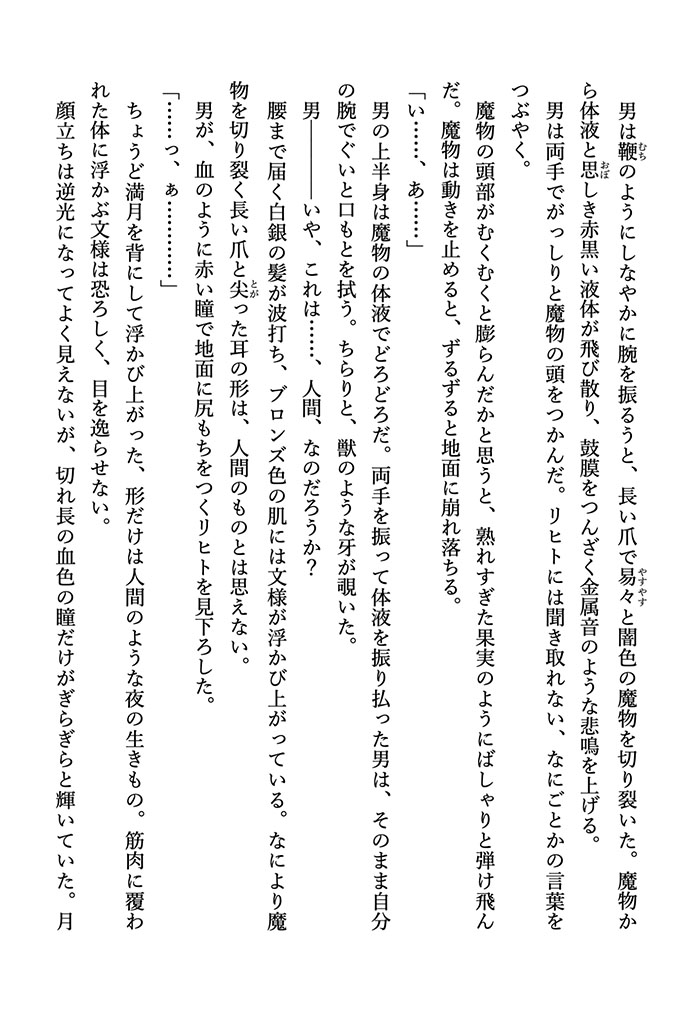 男は鞭のようにしなやかに腕を振るうと、長い爪で易々と闇色の魔物を切り裂いた。魔物か
ら体液と思しき赤黒い液体が飛び散り、鼓膜をつんざく金属音のような悲鳴を上げる。
男は両手でがっしりと魔物の頭をつかんだ。リヒトには聞き取れない、なにごとかの言葉を
つぶやく。
魔物の頭部がむくむくと膨らんだかと思うと、熟れすぎた果実のようにばしゃりと弾け飛ん
だ。魔物は動きを止めると、ずるずると地面に崩れ落ちる。
「い……、あ……」
男の上半身は魔物の体液でどろどろだ。両手を振って体液を振り払った男は、そのまま自分
の腕でぐいと口もとを拭う。ちらりと、獣のような牙が覗いた。
男――――いや、これは……、人間、なのだろうか？
腰まで届く白銀の髪が波打ち、ブロンズ色の肌には文様が浮かび上がっている。なにより魔
物を切り裂く長い爪と尖った耳の形は、人間のものとは思えない。
男が、血のように赤い瞳で地面に尻もちをつくリヒトを見下ろした。
「……っ、ぁ…………」
ちょうど満月を背にして浮かび上がった、形だけは人間のような夜の生きもの。筋肉に覆わ
れた体に浮かぶ文様は恐ろしく、目を逸らせない。
顔立ちは逆光になってよく見えないが、切れ長の血色の瞳だけがぎらぎらと輝いていた。月